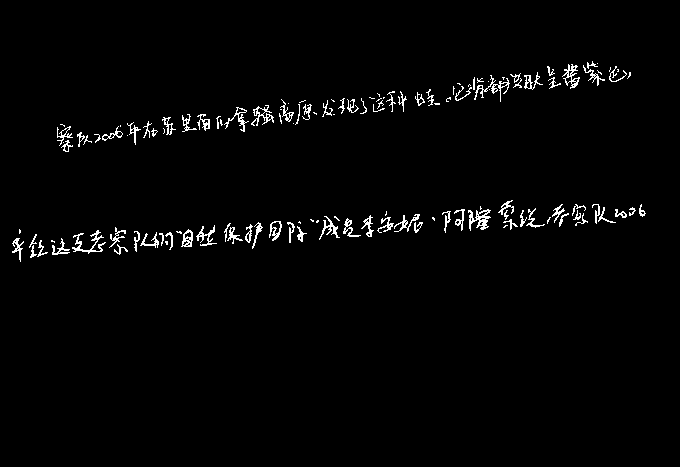 察队2006年在苏里南的拿骚高原发现了这种蛙。它背部皮肤呈紫色,
率领这支考察队的"自然保护国际"成员李安妮·阿隆索说,考察队2006